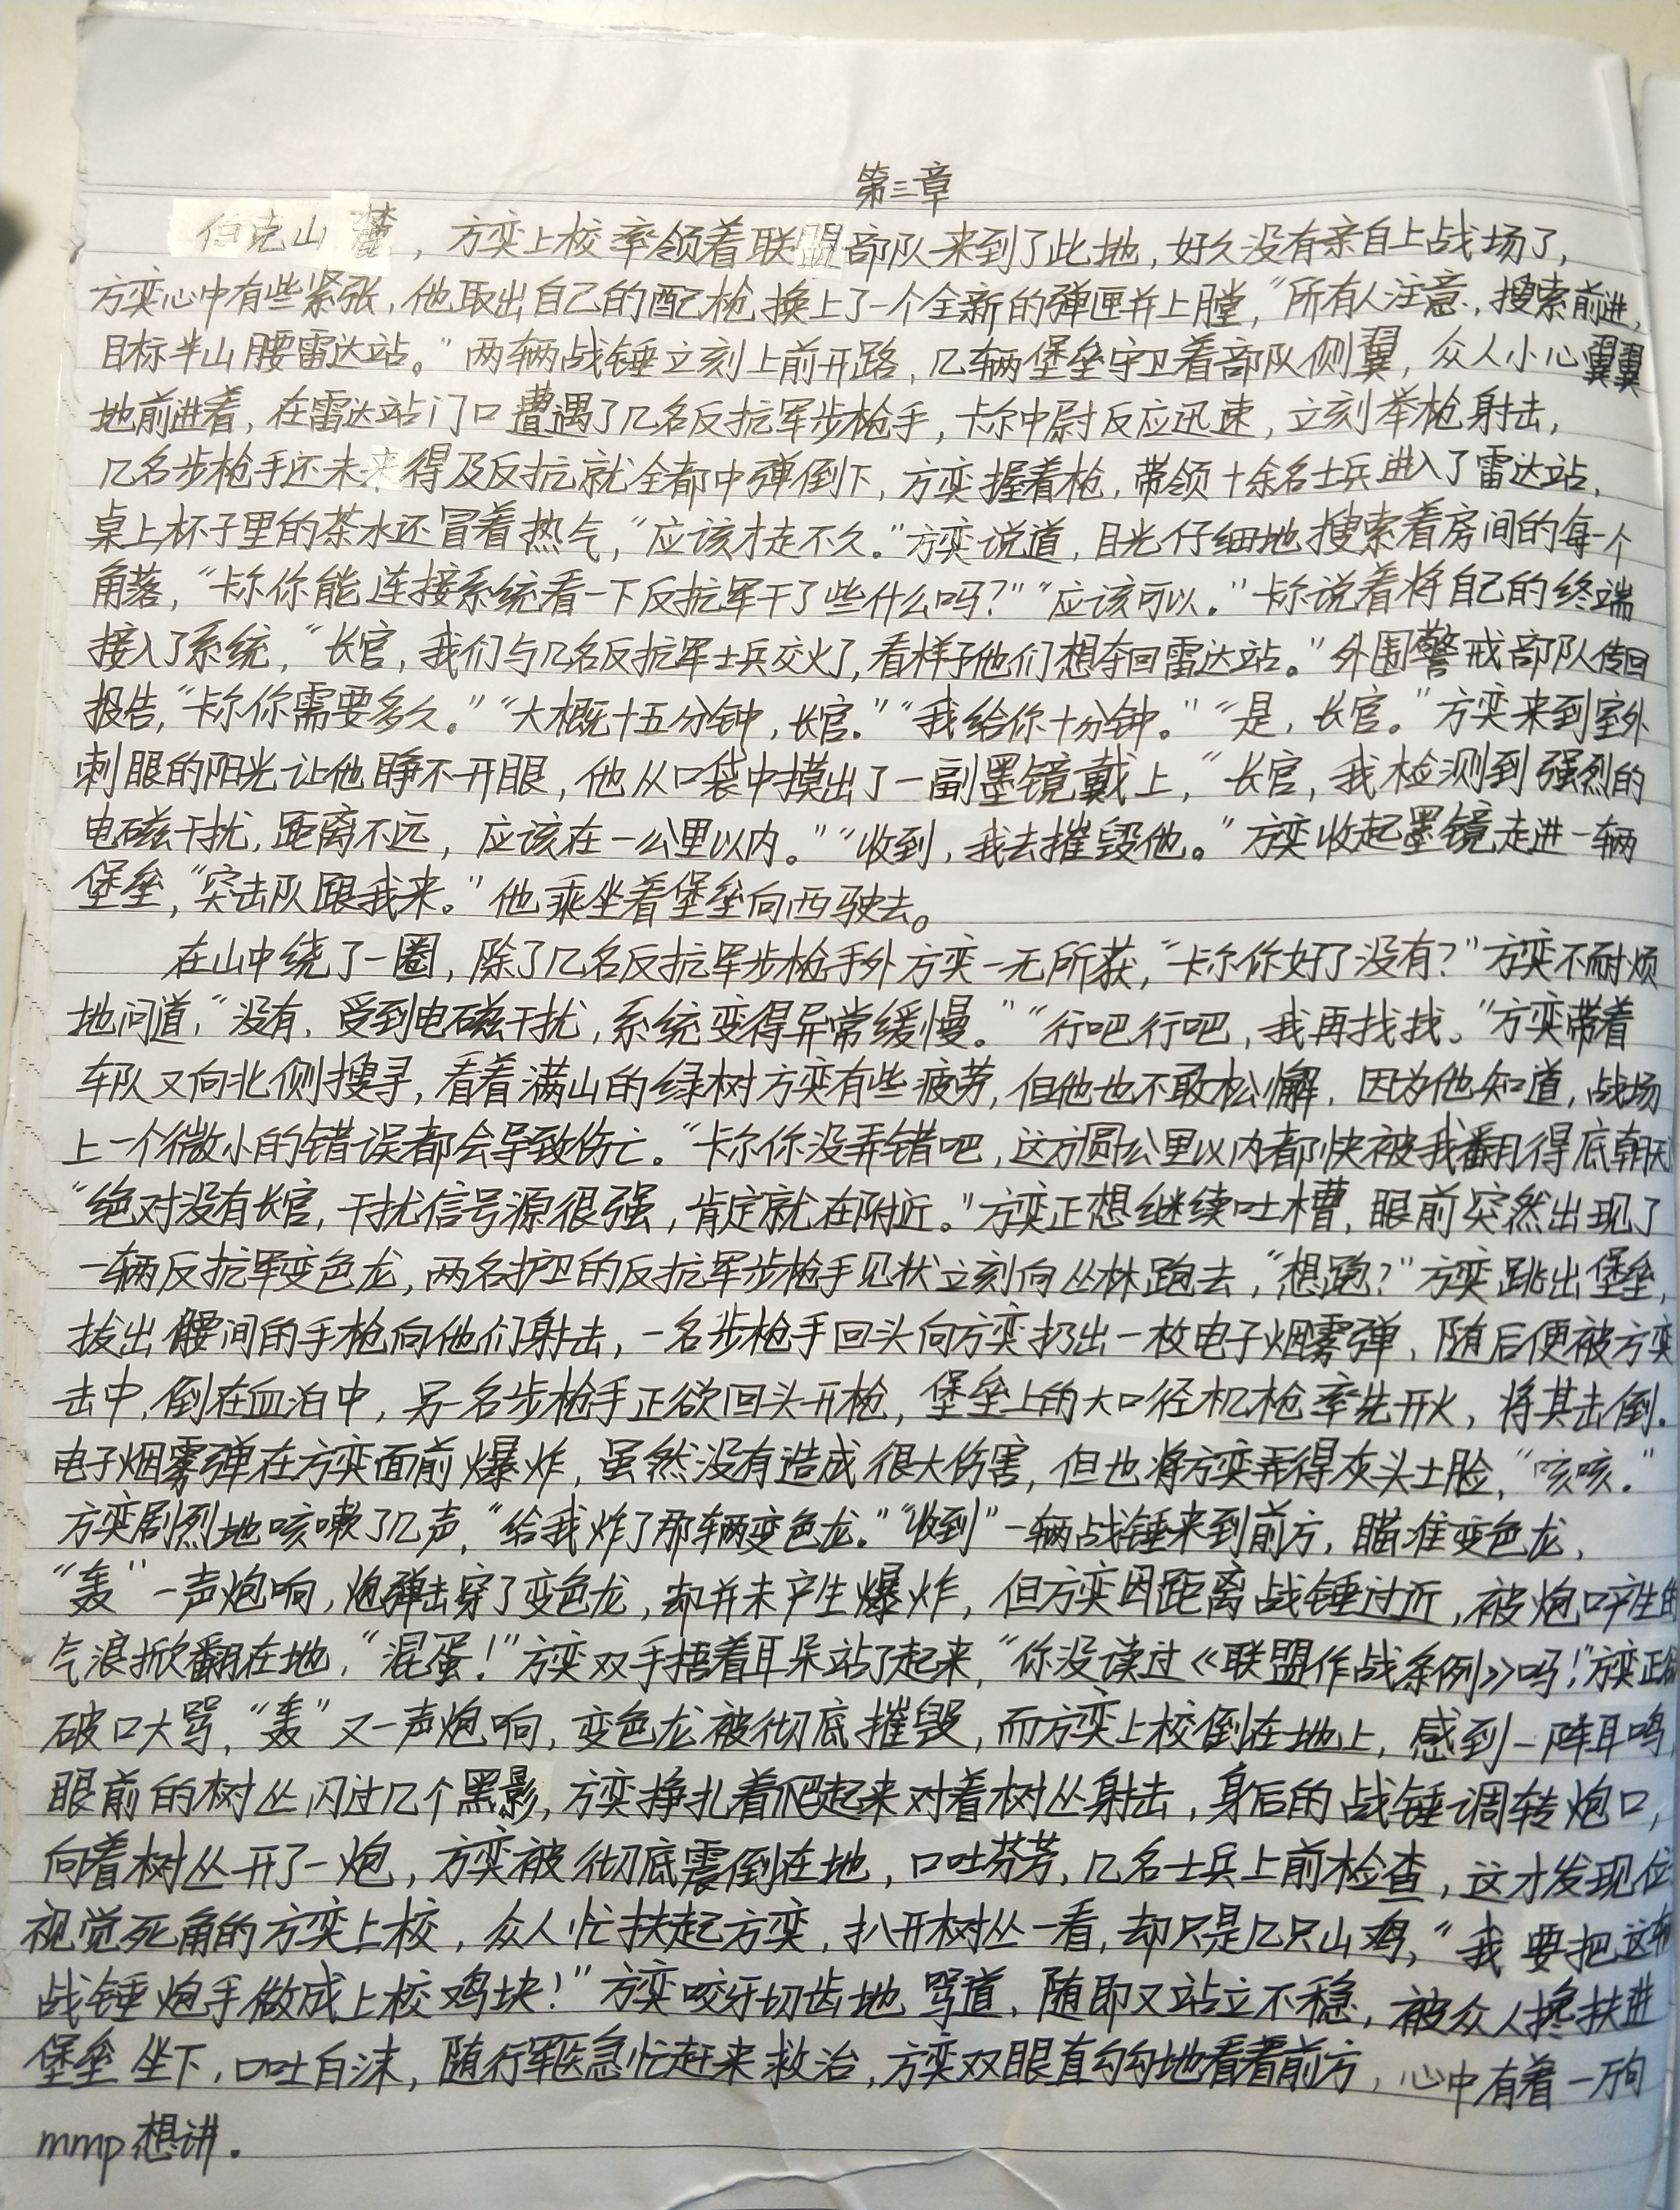 第三章
伯克山麓，方奕上校率领着联盟部队来到了此地，好久没有亲自上战场了，
方奕心中有些紧张，他取出自己的配枪换上了一个全新的弹匣并上膛，“所有人注意，搜索前进，
目标半山腰雷达站。”两辆战锤立刻上前开路，几辆堡垒守卫着部队侧翼，众人小心翼翼
地前进着，在雷达站门口遭遇了几名反抗军步枪手，卡尔中尉反应迅速，立刻举枪射击，
几名步枪手还未来得及反抗就全都中弹倒下，方奕握着枪，带领十余名士兵进入了雷达站，
桌上杯子里的茶水还冒着热气，“应该才走不久。”方奕说道，目光仔细地搜索着房间的每一个
角落，“卡尔你能连接系统看一下反抗军干了些什么吗？”“应该可以。”卡尔说着将自己的终端
接入了系统，“长官，我们与几名反抗军士兵交火了，看样子他们想夺回雷达站。”外围警戒部队传回
报告，“卡尔你需要多久。”“大概十五分钟，长官。”“我给你十分钟。”“是，长官。”方奕来到室外
刺眼的阳光让他睁不开眼，他从口袋中摸出了一副墨镜戴上，“长官，我检测到强烈的
电磁干扰，距离不远，应该在一公里以内。”“收到，我去摧毁他。”方奕收起墨镜走进一辆
堡垒，“突击队跟我来。”他乘坐着堡垒向西驶去。
在山中绕了一圈，除了几名反抗军步枪手外方奕一无所获，“卡尔你好了没有？”方奕不耐烦
地问道，“没有，受到电磁干扰，系统变得异常缓慢。”“行吧行吧，我再找找。”方奕带着
车队又向北侧搜寻，看着满山的绿树方奕有些疲劳，但他也不敢松懈，因为他知道，战场
上一个微小的错误都会导致伤亡。“卡尔你没弄错吧，这方圆公里以内都快被我翻得底朝天
“绝对没有长官，干扰信号源很强，肯定就在附近。”方奕正想继续吐槽，眼前突然出现了
一辆反抗军变色龙，两名护卫的反抗军步枪手见状立刻向丛林跑去，“想跑？”方奕跳出堡垒，
拔出腰间的手枪向他们射击，一名步枪手回头向方奕扔出一枚电子烟雾弹，随后便被方奕
击中，倒在血泊中，另一名步枪手正欲回头开枪，堡垒上的大口径机枪率先开火，将其击倒.
电子烟雾弹在方奕面前爆炸，虽然没有造成很大伤害，但也将方奕弄得灰头土脸，“咳咳.”
方奕剧烈地咳嗽了几声，“给我炸了那辆变色龙。”“收到”一辆战锤来到前方，瞄准变色龙，
“轰”一声炮响，炮弹击穿了变色龙，却并未产生爆炸，但方奕因距离战锤过近，被炮口产生的
气浪掀翻在地，“混蛋！”方奕双手捂着耳朵站了起来，“你没读过《联盟作战条例》吗！”方奕正
破口大骂，“轰”又一声炮响，变色龙被彻底摧毁，而方奕上校倒在地上，感到一阵耳鸣
眼前的树丛闪过几个黑影，方奕挣扎着爬起来对着树丛射击，身后的战锤调转炮口，
向着树丛开了一炮，方奕被彻底震倒在地，口吐芬芳，几名士兵上前检查，这才发现位
视觉死角的方奕上校，众人忙扶起方奕，扒开树丛一看，却只是几只山鸡，“我要把这辆
战锤炮手做成上校鸡块！”方奕咬牙切齿地骂道，随即又站立不稳，被众人搀扶进
堡垒坐下，口吐白沫，随行军医急忙赶来救治，方奕双眼直勾勾地看着前方，心中有着一万句
mmp想讲.